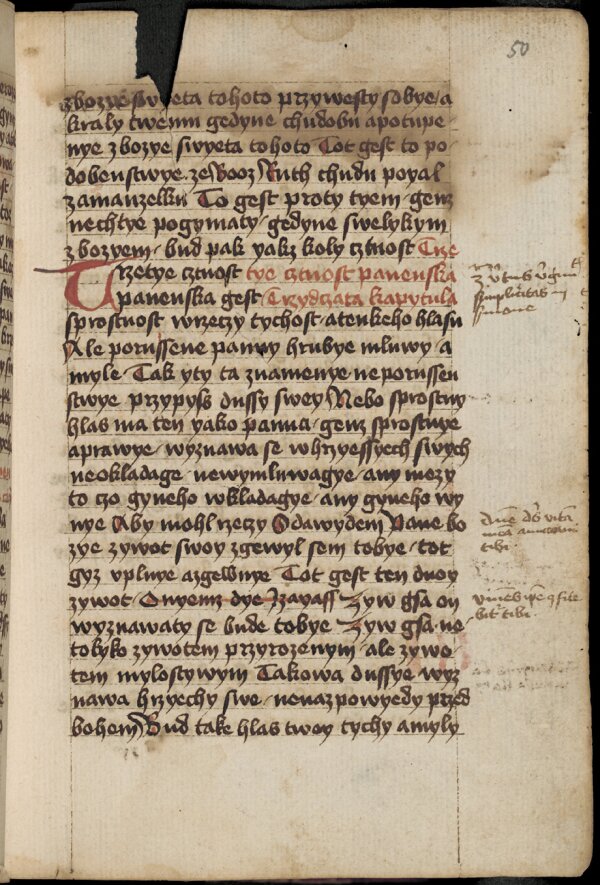 50
zbozye swyeta tohoto przywesty sobye / a
kraly twemu gedyne chudobu a potupe-
nye zbozye swyeta tohoto Tot gest to po-
dobenstwye. ze Booz Ruth chudu poyal
za manzelku To gest proty tyem · genz
nechtye pogymaty · gedyne s welykym
zbozyem · bud pak yakz koly cztnost Trze
Trzetye cztnost tye cztnost panenska
panenska gest / Trzydczata kapytula
sprostnost w rzeczy tychost · a tenkeho hlasu
Ale porussene panny hrubye mluwy · a
myle · Tak y ty ta znamenye neporussen
stwye przypyss dussy swey Nebo sprostny
hlas ma ten yako panna · genz sprostnye
a prawye · wyznawa se w hrzyessyech swych
neokladage · newymluwagye · any mezy
to czo gyneho wkladagye · any gyneho wy
nye Aby mohl rzeczy S dawydem Pane bo
zye zywot swoy zgewyl sem tobye · tot
gyz vplnye a zgewnye Tot gest ten dwoy
zywot · O nyemz dye Izayass Zyw gsa on
wyznawaty se bude tobye Zyw gsa · ne-
tolyko zywotem przyrozenym · ale zywo-
tem mylostywym Takowa dussye wyz
nawa hrzyechy swe · ne na zpowyedy przed
bohem Bud take hlas twoy tychy a myly
simplicitas in
sermone
tibi